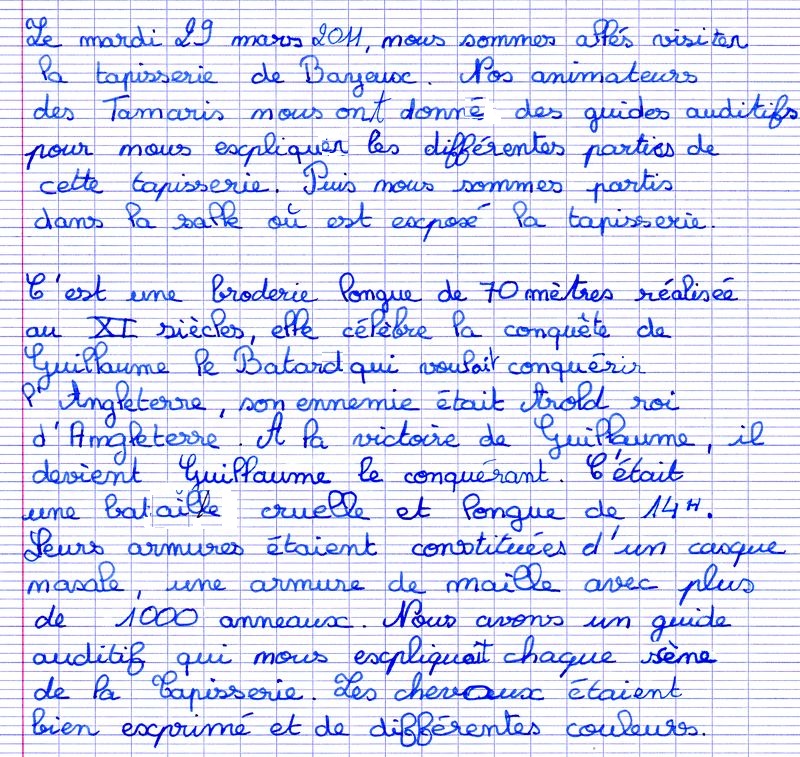 Le mardi 29 mars 2011, nous sommes allés visiter
la tapisserie de Bayeux. Nos animateurs
des Tamaris nous ont donné des guides auditifs
pour nous expliquer les différentes parties de
cette tapisserie. Puis nous sommes partis
dans la salle où est exposé la tapisserie.
C'est une broderie longue de 70 mètres réalisée
au XI siècles, elle célèbre la conquête de
Guillaume le Batard qui voulait conquérir
l'Angleterre, son ennemie était Arold roi
d'Angleterre. A la victoire de Guillaume, il
devient Guillaume le conquérant. C'était
une bataille cruelle et longue de 14H.
Leurs armures étaient constituées d'un casque
nasale, une armure de maille avec plus
de 1000 anneaux. Nous avons un guide
auditif qui nous expliquait chaque sème
de la tapisserie. Les chevaux étaient
bien exprimé et de différentes couleurs.